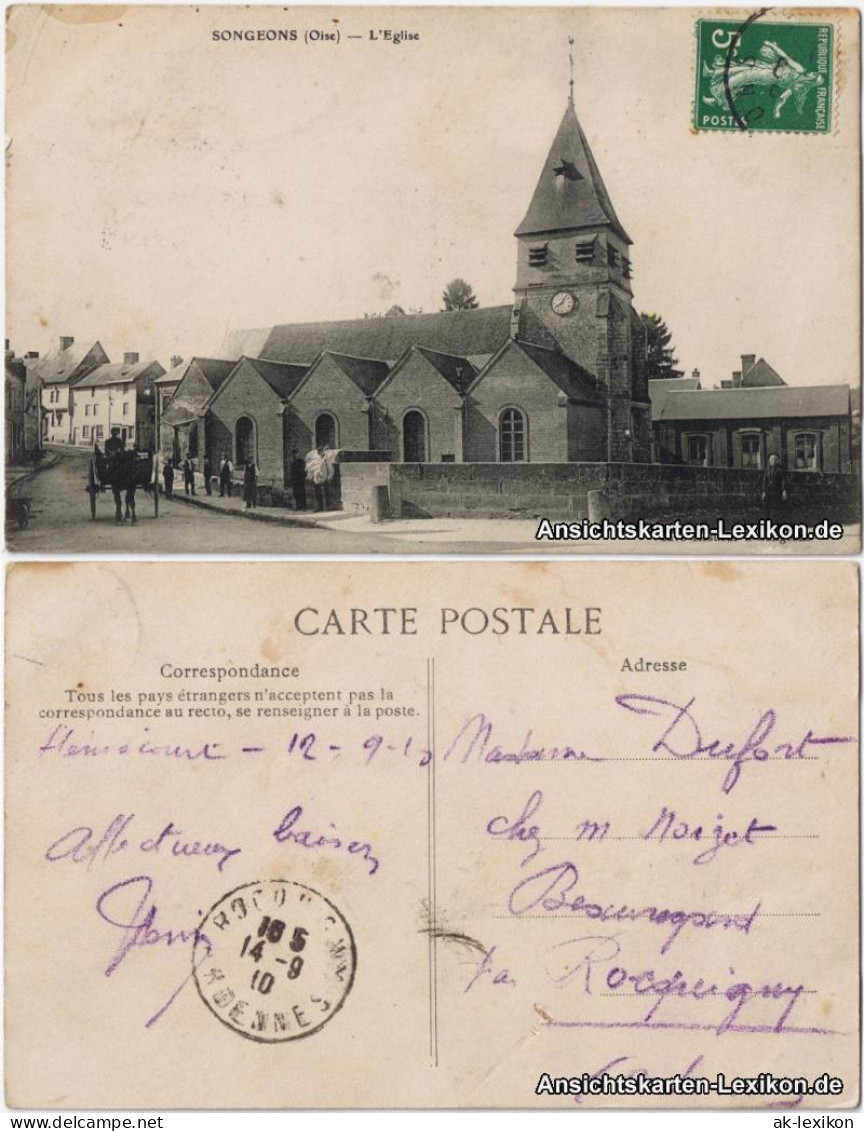 SONGEONS (Oise) — L'Eglise
RÉPUBLIQUE FRANÇAISE
5c
POSTES
Ansichtskarten-Lexikon.de
CARTE POSTALE
Correspondance
Adresse
Tous les pays étrangers n'acceptent pas la
correspondance au recto, se renseigner à la poste.
12-9-10
Madame Dufort
Affectueux baisers
chez M Noizet
Henri
par Rocquigny
16 5
14-9
10
ARDENNES
Ansichtskarten-Lexikon.de
ak-lexikon